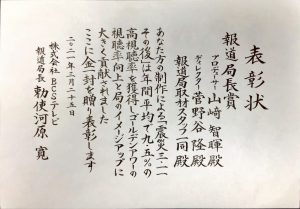 表彰状
報道局長賞
プロデューサー 山崎智暉殿
ディレクター 菅野谷隆殿
報道局取材スタッフ一同殿
あなた方の制作による「震災三・一一
その後」は年間平均で九.五%の
高視聴率を獲得しゴールデンアワーの
視聴率向上と局のイメージアップに
大きく貢献されました
ここに金一封を贈り表彰します
二〇二一年三月二十五日
株式会社 BCSテレビ
報道局長 勅使河原 寛